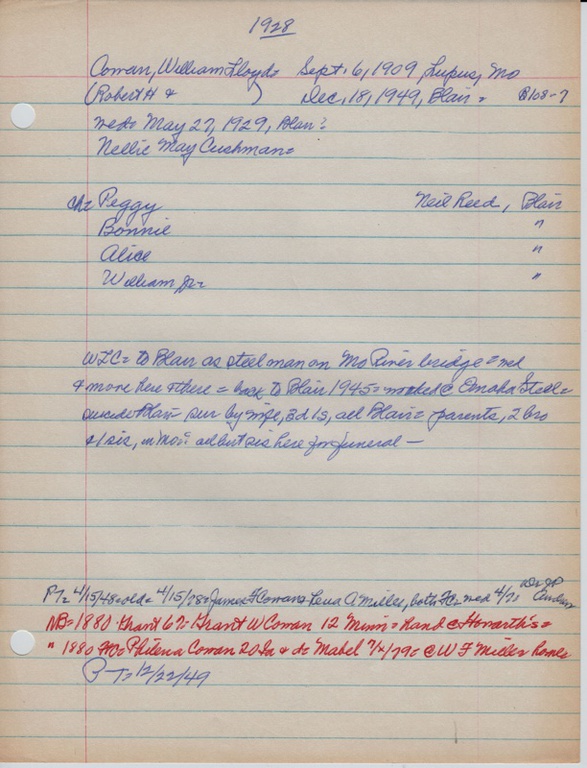 1928
Cowan, William Lloyd= Sept. 6, 1909, Lupus, Mo
(Robert H & ) Dec, 18, 1949, Blair = B108-7
wed= May 27, 1929, Blair=
Nellie May Cushman=
ch= Peggy Neil Reed, Blair
Bonnie "
Alice "
William Jr= "
WLC= to Blair as steel man on Mo River bridge = wed
& more here & there = back to Blair 1945 = worked @ Omaha Steel =
suicide Blair= sur by wife, 3 d 1 s, all Blair = parents, 2 bro
& 1 sis, in Mo= all but sis here for funeral —
PT= 4/15/48=old= 4/15/78=James F Cowan & Lena A Miller, both FC= wed 4/73
NB= 1880 Grant 67= Grant W Cowan 12 Minn= hand @ Howarth's=
" 1880 = Philena Cowan 20 Ia & d= Mabel 7/x/79= @ W F Miller home
P-T= 12/22/49